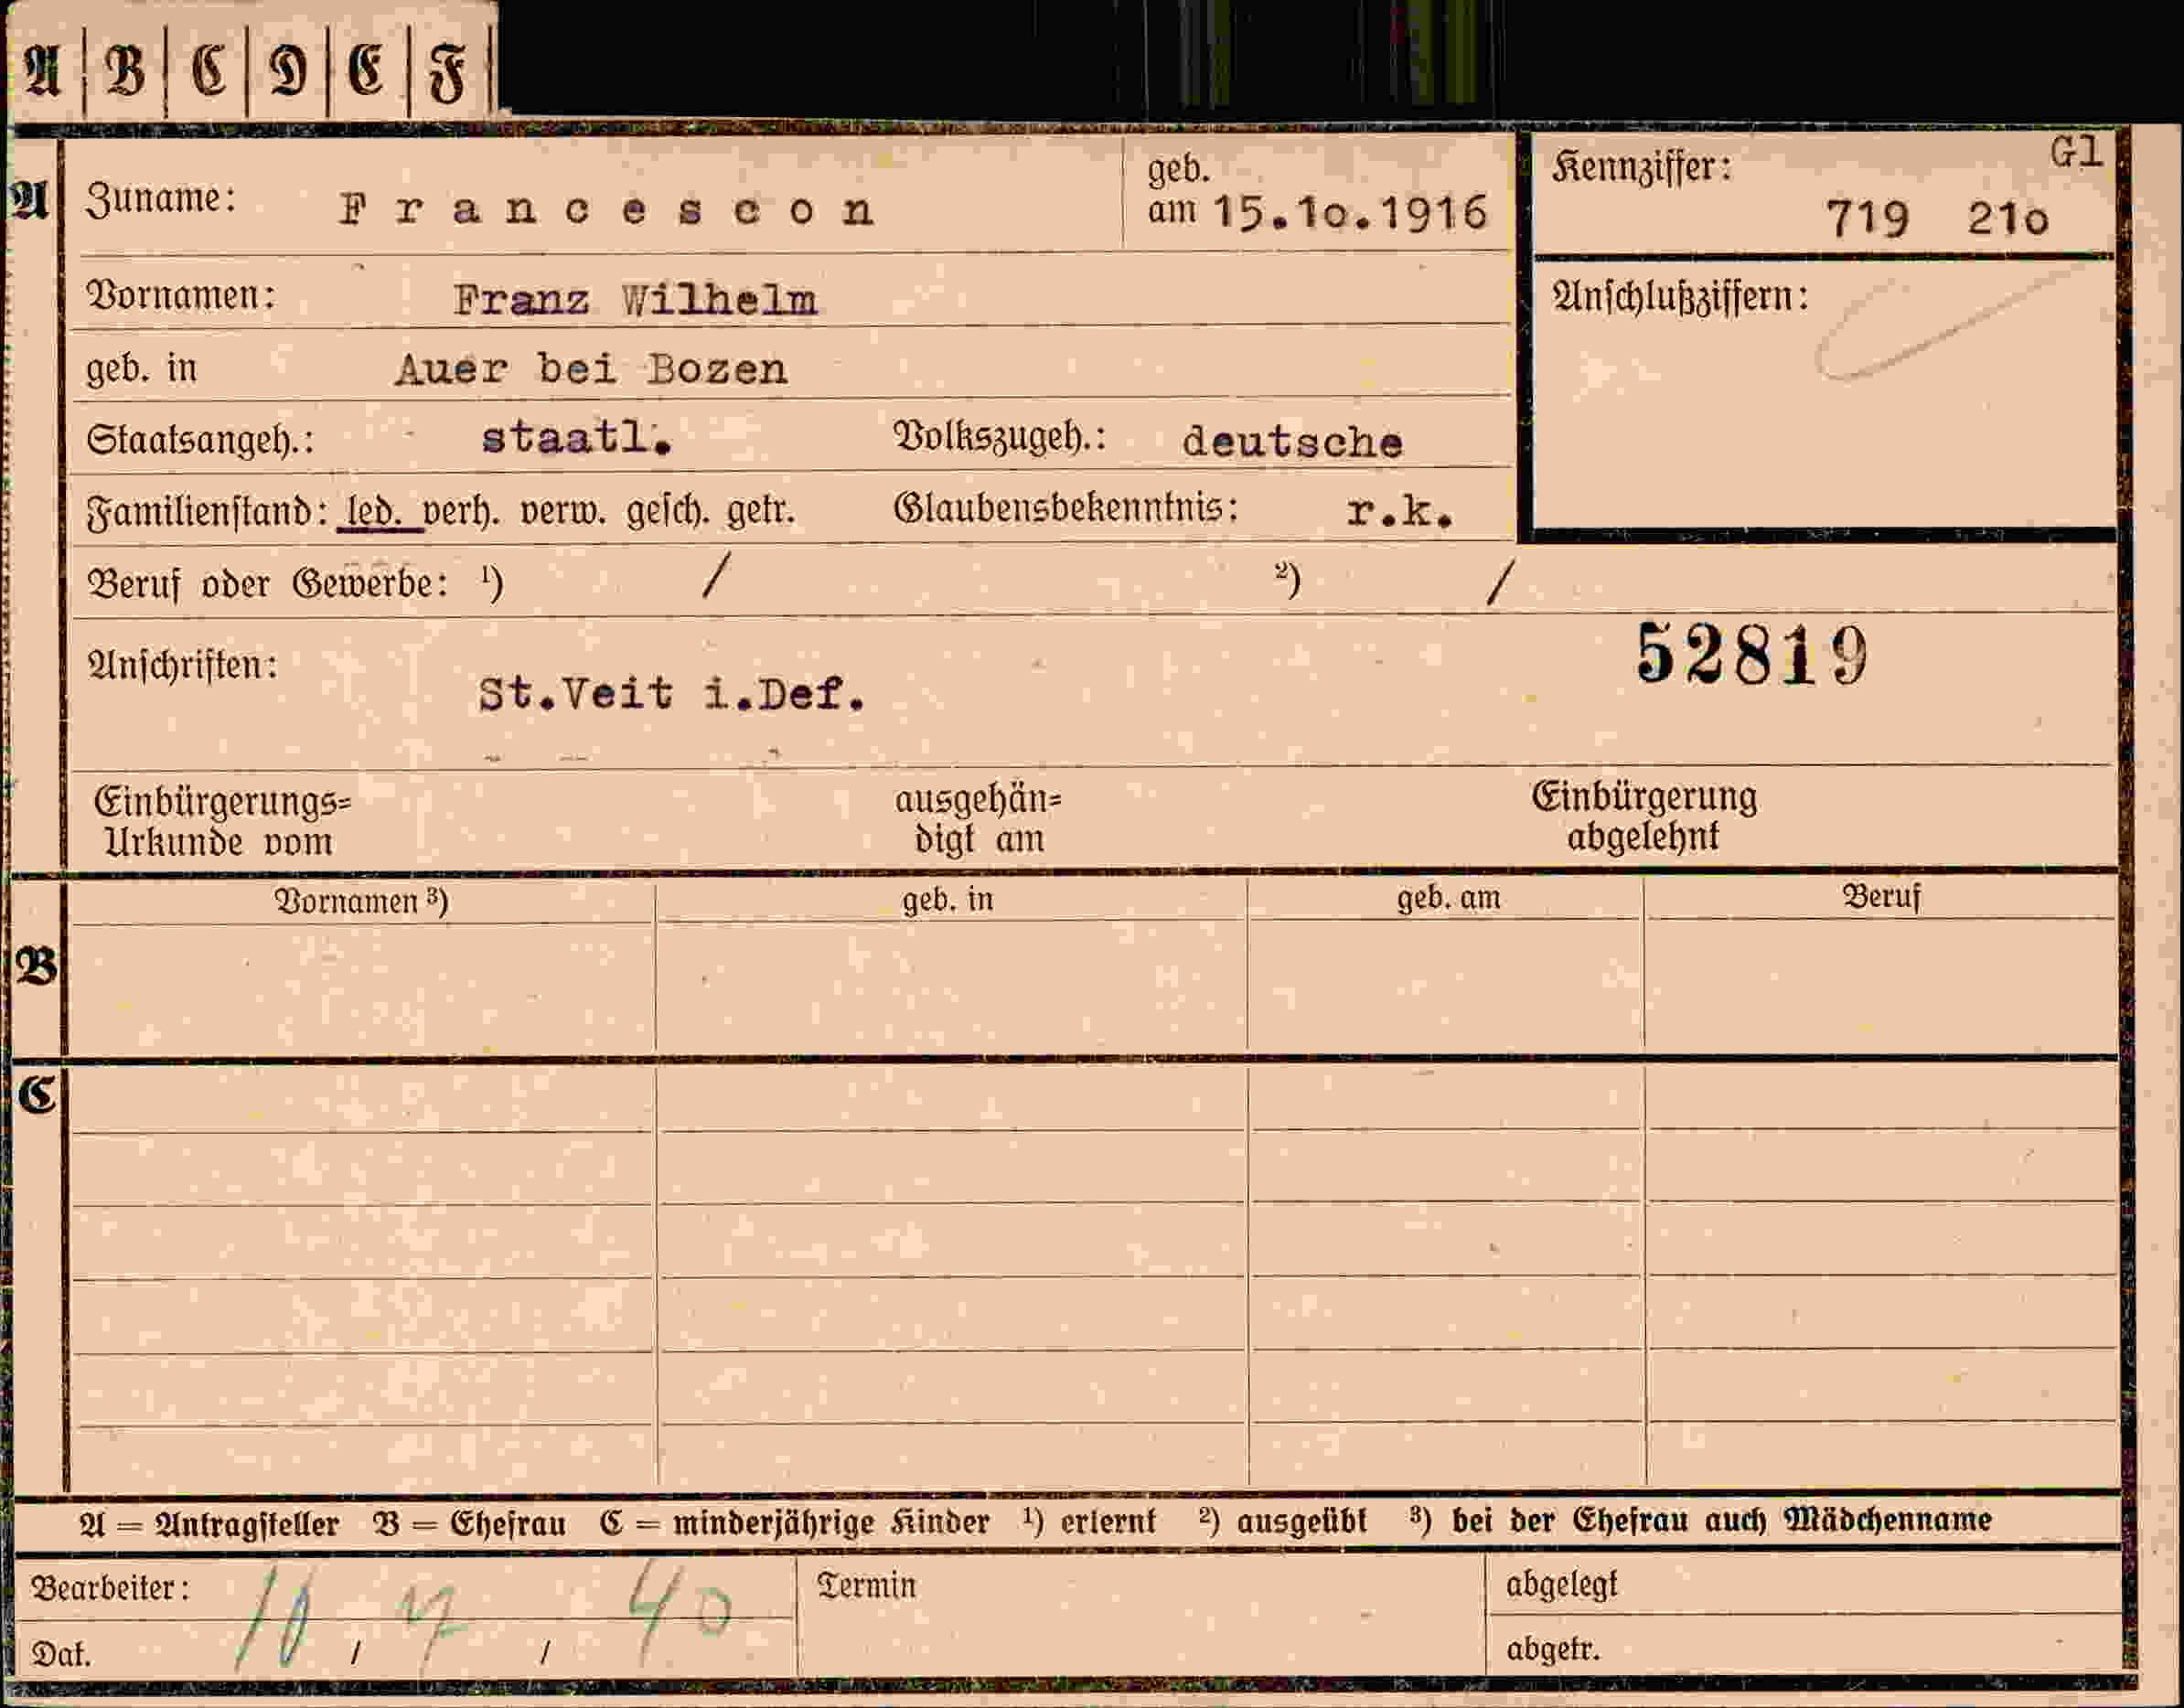 A B C D E F
Gl
A Zuname: Francescon geb. am 15.1o.1916 Kennziffer: 719 21o
Vornamen: Franz Wilhelm Anschlußziffern:
geb. in Auer bei Bozen
Staatsangeh.: staatl. Volkszugeh.: deutsche
Familienstand: led. verh. verw. gesch. getr. Glaubensbekenntnis: r.k.
Beruf oder Gewerbe: ¹) / ²) /
52819
Anschriften: St.Veit i.Def.
Einbürgerungs= ausgehän= Einbürgerung
Urkunde vom digt am abgelehnt
Vornamen ³) geb. in geb. am Beruf
B
C
A = Antragsteller B = Ehefrau C = minderjährige Kinder ¹) erlernt ²) ausgeübt ³) bei der Ehefrau auch Mädchenname
Bearbeiter: Termin abgelegt
Dat. 10 / 7 / 40 abgetr.